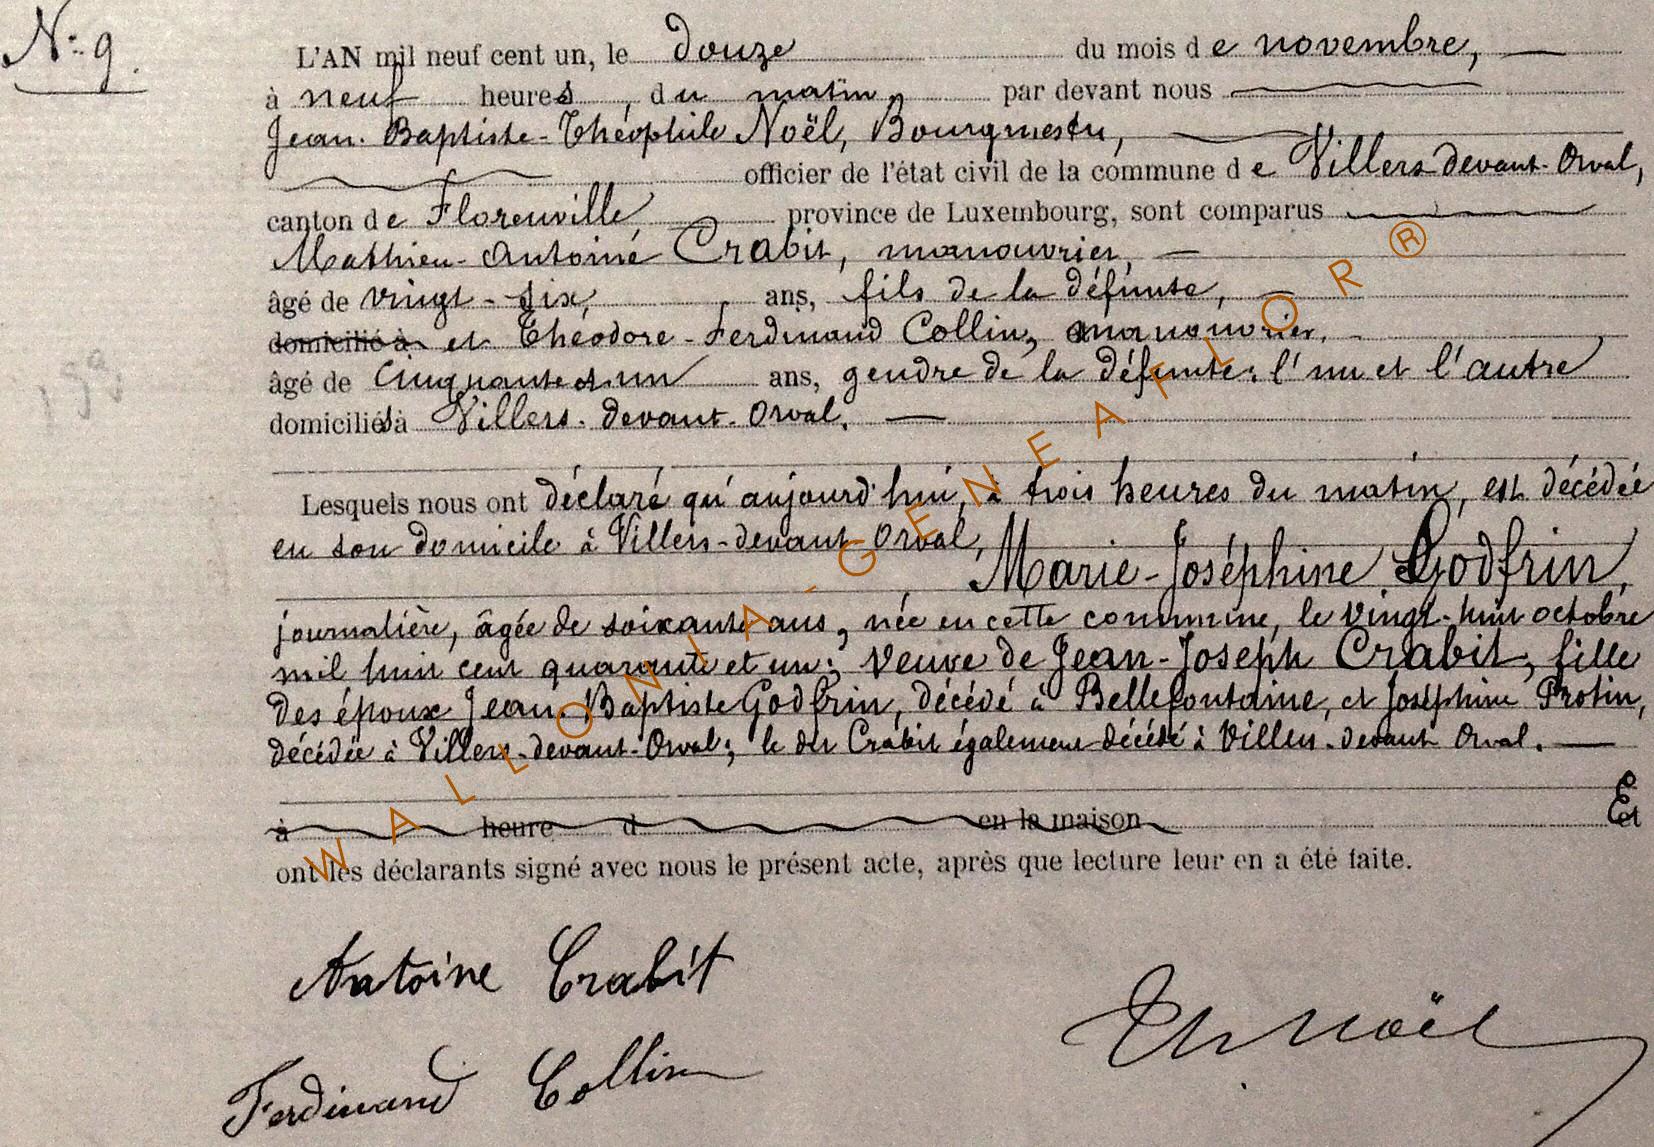 N° 9.
L'AN mil neuf cent un, le douze du mois de novembre,
à neuf heures, du matin, par devant nous
Jean-Baptiste-Théophile Noël, Bourgmestre,
officier de l'état civil de la commune de Villers devant-Orval,
canton de Florenville, province de Luxembourg, sont comparus
Mathieu-Antoine Crabit, manouvrier,
âgé de vingt-six, ans, fils de la défunte,
domicilié à et Théodore-Ferdinand Collin, manouvrier,
âgé de cinquante et un ans, gendre de la défunte; l'un et l'autre
domiciliés à Villers-devant-Orval.
Lesquels nous ont déclaré qu'aujourd'hui, à trois heures du matin, est décédée
en son domicile à Villers-devant Orval,
Marie-Joséphine Godfrin,
journalière, âgée de soixante ans, née en cette commune, le vingt-huit octobre
mil huit cent quarante et un; veuve de Jean-Joseph Crabit, fille
des époux Jean-Baptiste Godfrin, décédé à Bellefontaine, et Joséphine Protin,
décédée à Villers-devant-Orval; le dit Crabit également décédé à Villers-devant Orval.
à heure d en la maison Et
ont les déclarants signé avec nous le présent acte, après que lecture leur en a été faite.
Antoine Crabit
Th Noël
Ferdinand Collin
WALLONIA-GENEAFLOR®